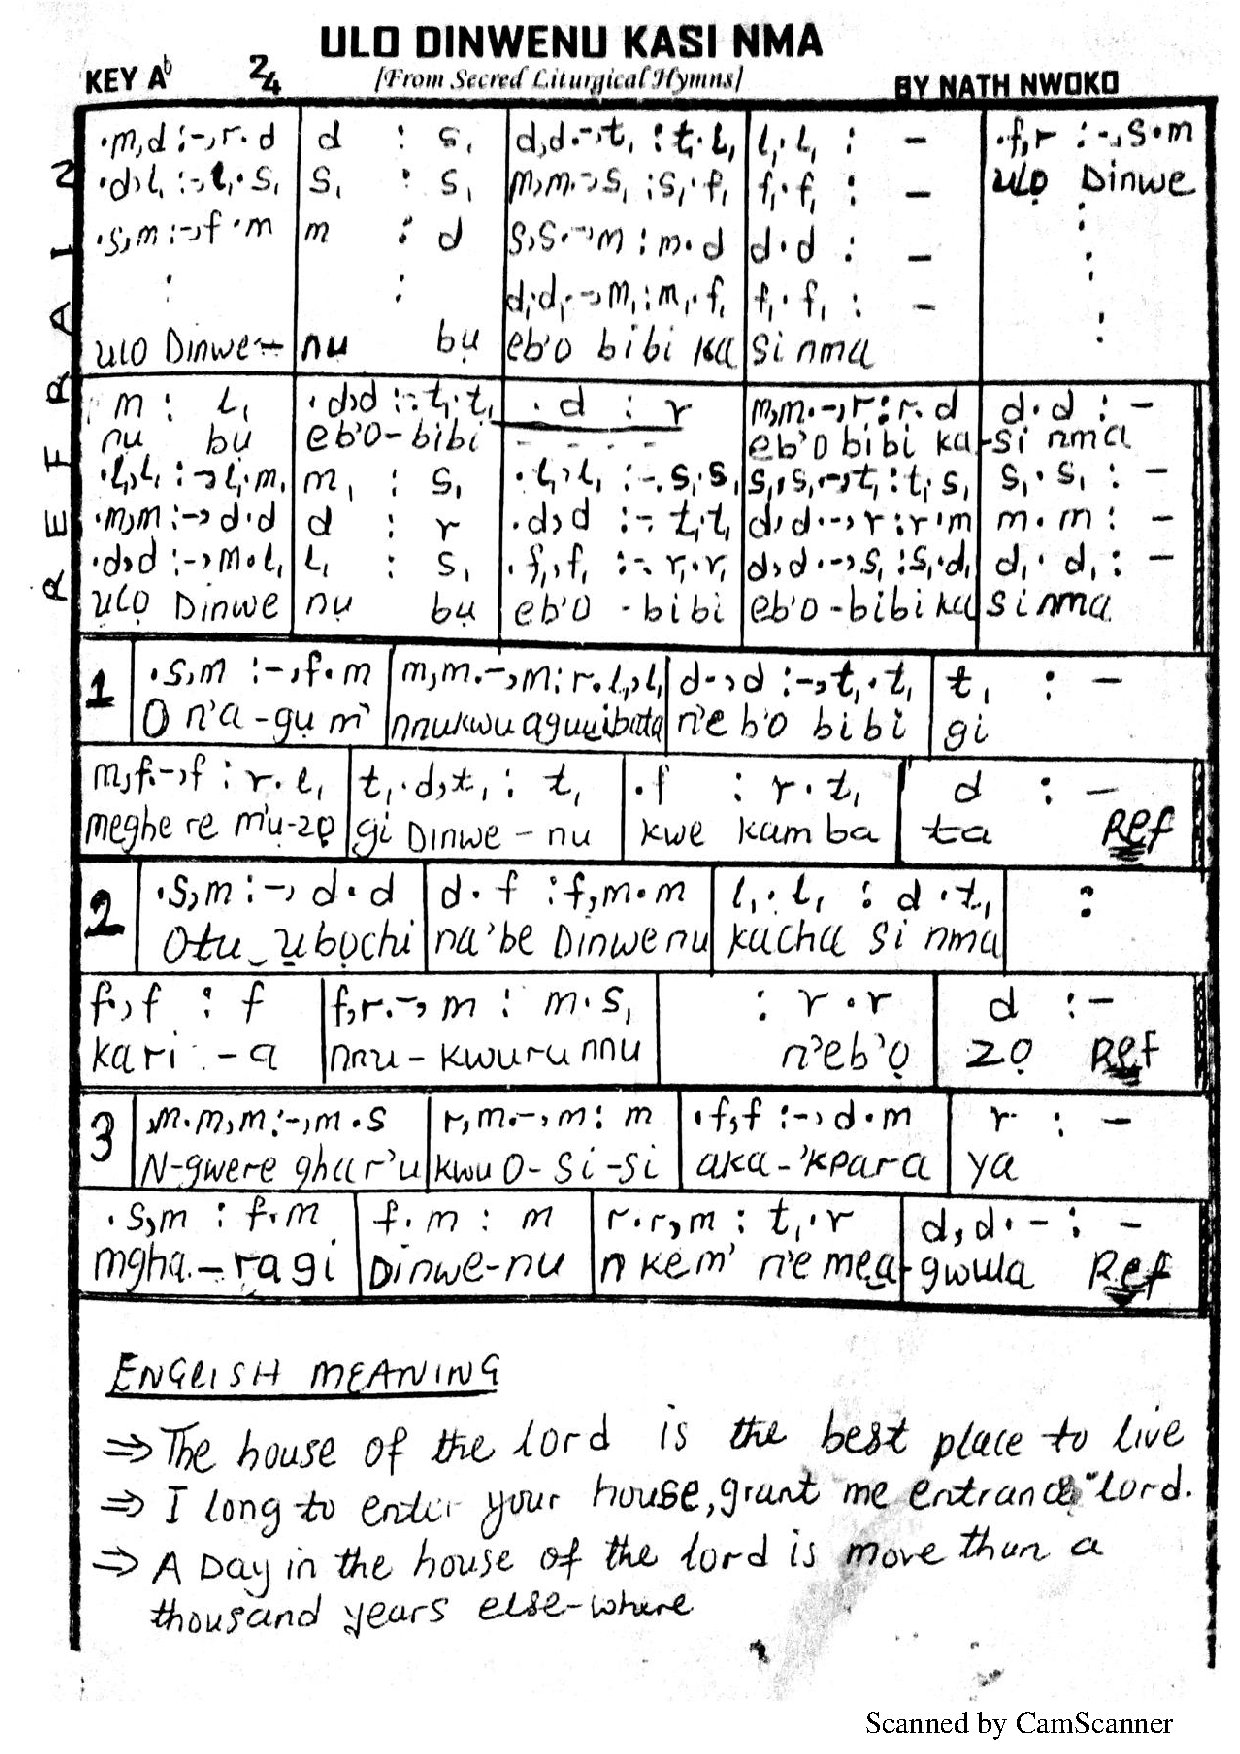 ULO DINWENU KASI NMA
[From Secred Liturgical Hymns]
KEY Ab 2/4 BY NATH NWOKO
REFRAIN
.m,d :-,r.d | d : s, | d,d.-,t, : t,.l, | l,.l, : - | .f,r :-,s.m
.d,l, :-,l,.s, | s, : s, | m,m.-,s, : s,.f, | f,.f, : - | ulọ Dinwe
.s,m :-,f.m | m : d | s,s.-,m : m.d | d.d : - | :
: | : | d,d,.-,m, : m,.f, | f,.f, : - | :
ulo Dinwe- | nụ bụ | eb'o bibi ka | si nma | :
m : l, | .d,d :-.t,.t, | .d : r | m,m.-,r : r.d | d.d : -
nu bu | eb'o-bibi | - - - - | eb'o bibi ka | -si nma
.l,l, :-,l,.m, | m, : s, | .l,,l, :-.s,s, | s,,s,.-,t, : t,.s, | s,.s, : -
.m,m :-,d.d | d : r | .d,d :-.t,.t, | d,d.-,r : r.m | m.m : -
.d,d :-,m.l, | l, : s, | .f,,f, :-.r,.r, | d,d.-,s, : s,.d, | d,.d, : -
ụlọ Dinwe | nụ bụ | eb'o -bibi | eb'o-bibi ka | si nma
1 | .s,m :-,f.m | m,m.-,m : r.l,,l, | d-,d :-,t,.t, | t, : -
O n'a-gụ m' | nnukwu aguụibata | n'e b'o bibi | gi
m,f.-,f : r.l, | t,.d,t, : t, | .f : r.t, | d : -
meghe re m'u-zọ | gi Dinwe-nu | kwe kam ba | ta Ref
2 | .s,m :-,d.d | d.f : f,m.m | l,.l, : d.t, | :
Otu ụbọchi | na'be Dinwenu | kacha si nma
f.,f : f | f,r.-,m : m.s, | : r.r | d :-
kari -a | nnu-kwuru nnu | n'eb'ọ | zọ Ref
3 | ,m.m,m :-,m.s | r,m.-,m : m | .f,f :-,d.m | r : -
N-gwere ghar'u | kwu O-si-si | aka-'kpara | ya
.s,m : f.m | f.m : m | r.r,m : t,.r | d,d.- : -
mgha.-ra gi | Dinwe-nu | n kem' n'e mea | -gwula Ref
ENGLISH MEANING
⇒ The house of the lord is the best place to live
⇒ I long to enter your house, grant me entrance lord.
⇒ A Day in the house of the lord is more than a
thousand years else-where
Scanned by CamScanner